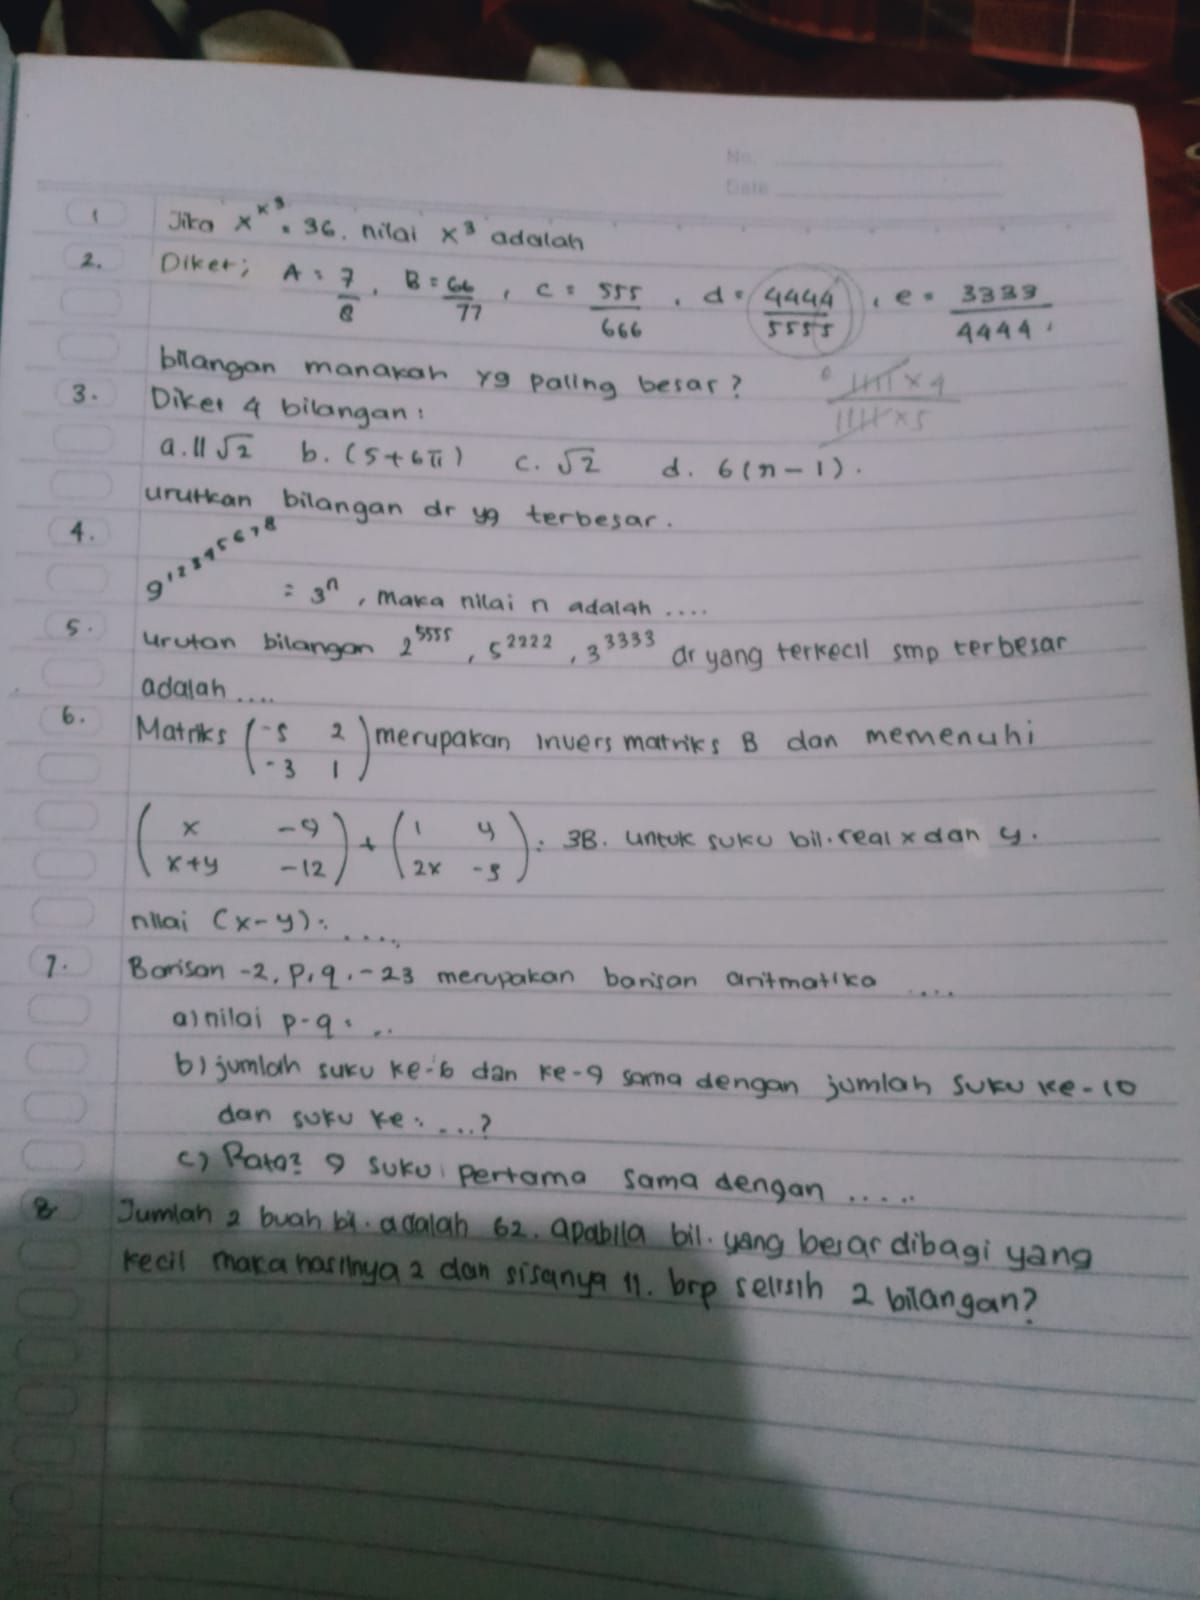 No.
Date
1 Jika x^x^3 = 36. nilai x^3 adalah
2. Diket; A = 7/8, B = 66/77, c = 555/666, d = 4444/5555, e = 3333/4444.
bilangan manakah yg paling besar? 11111 x 4 / 11111 x 5
3. Diket 4 bilangan:
a. 11√2 b. (5+6π) c. √2 d. 6(π-1).
urutkan bilangan dr yg terbesar.
4. 9^1^2^3^4^5^6^7^8 = 3^n, maka nilai n adalah ....
5. urutan bilangan 2^5555, 5^2222, 3^3333 dr yang terkecil smp terbesar
adalah ....
6. Matriks (-5 2 / -3 1) merupakan invers matriks B dan memenuhi
(x -9 / x+y -12) + (1 y / 2x -5) = 3B. untuk suku bil. real x dan y.
nilai (x-y) = ....
7. Barisan -2, p, q, -23 merupakan barisan aritmatika ....
a) nilai p-q = ...
b) jumlah suku ke-6 dan ke-9 sama dengan jumlah suku ke-10
dan suku ke = ....?
c) Rata² 9 suku pertama sama dengan .....
8 Jumlah 2 buah bil. adalah 62. apabila bil. yang besar dibagi yang
kecil maka hasilnya 2 dan sisanya 11. brp selisih 2 bilangan?